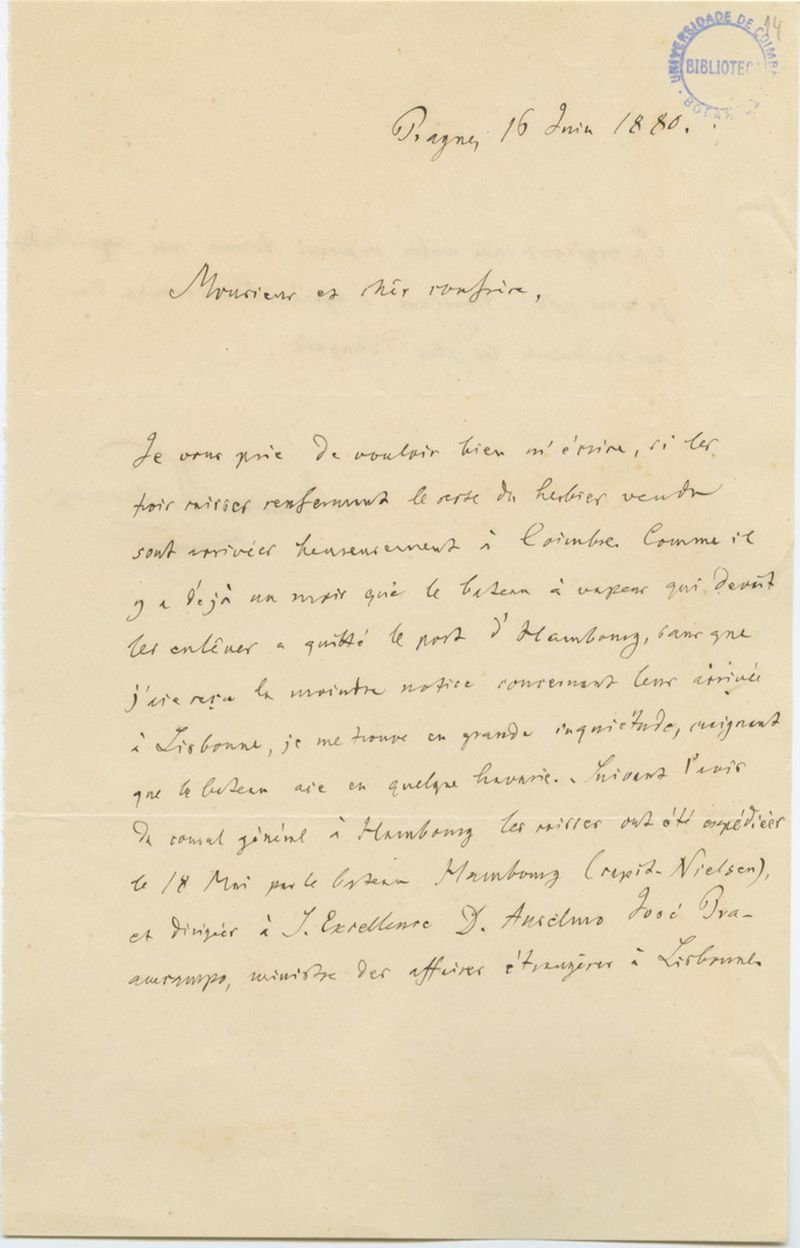 14
UNIVERSIDADE DE COIMBRA
BIBLIOTECA
Prague, 16 Juin 1880.
Monsieur et chèr confrère,
Je vous prie de vouloir bien m'écrire, si les
trois caisses renfermant le reste du herbier vendu
sont arrivées heureusement à Coimbre. Comme il
y a déjà un mois que le bateau à vapeur qui devait
les enlêver a quitté le port d'Hambourg, sans que
j'aie reçu la moindre notice concernant leur arrivée
à Lisbonne, je me trouve en grande inquiétude, craignant
que le bateau aie eu quelque havarie. Suivant l'avis
du consul général à Hambourg les caisses ont été expédiées
le 18 Mai par le bateau Hambourg (capit. Nielsen),
et dirigées à S. Excellence D. Anselmo José Bra-
amcampo, ministre des affaires étrangères à Lisbonne.